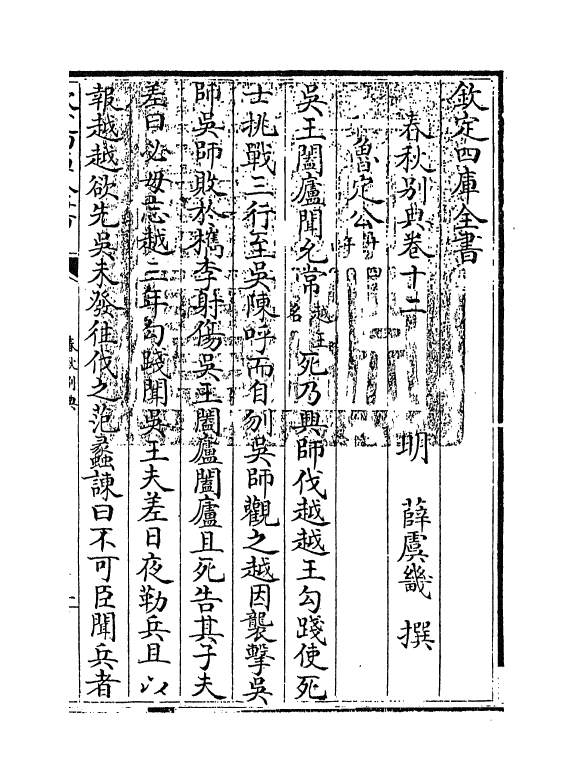 欽定四庫全書
春秋別典卷十二
明 薛虞畿 撰
魯定公
吳王闔廬聞允常越王名死乃興師伐越越王勾踐使死
士挑戰三行至吳陳呼而自刎吳師觀之越因襲擊吳
師吳師敗於檇李射傷吳王闔廬闔廬且死告其子夫
差曰必毋忘越三年勾踐聞吳王夫差日夜勒兵且以
報越越欲先吳未發往伐之范蠡諫曰不可臣聞兵者
春秋別典